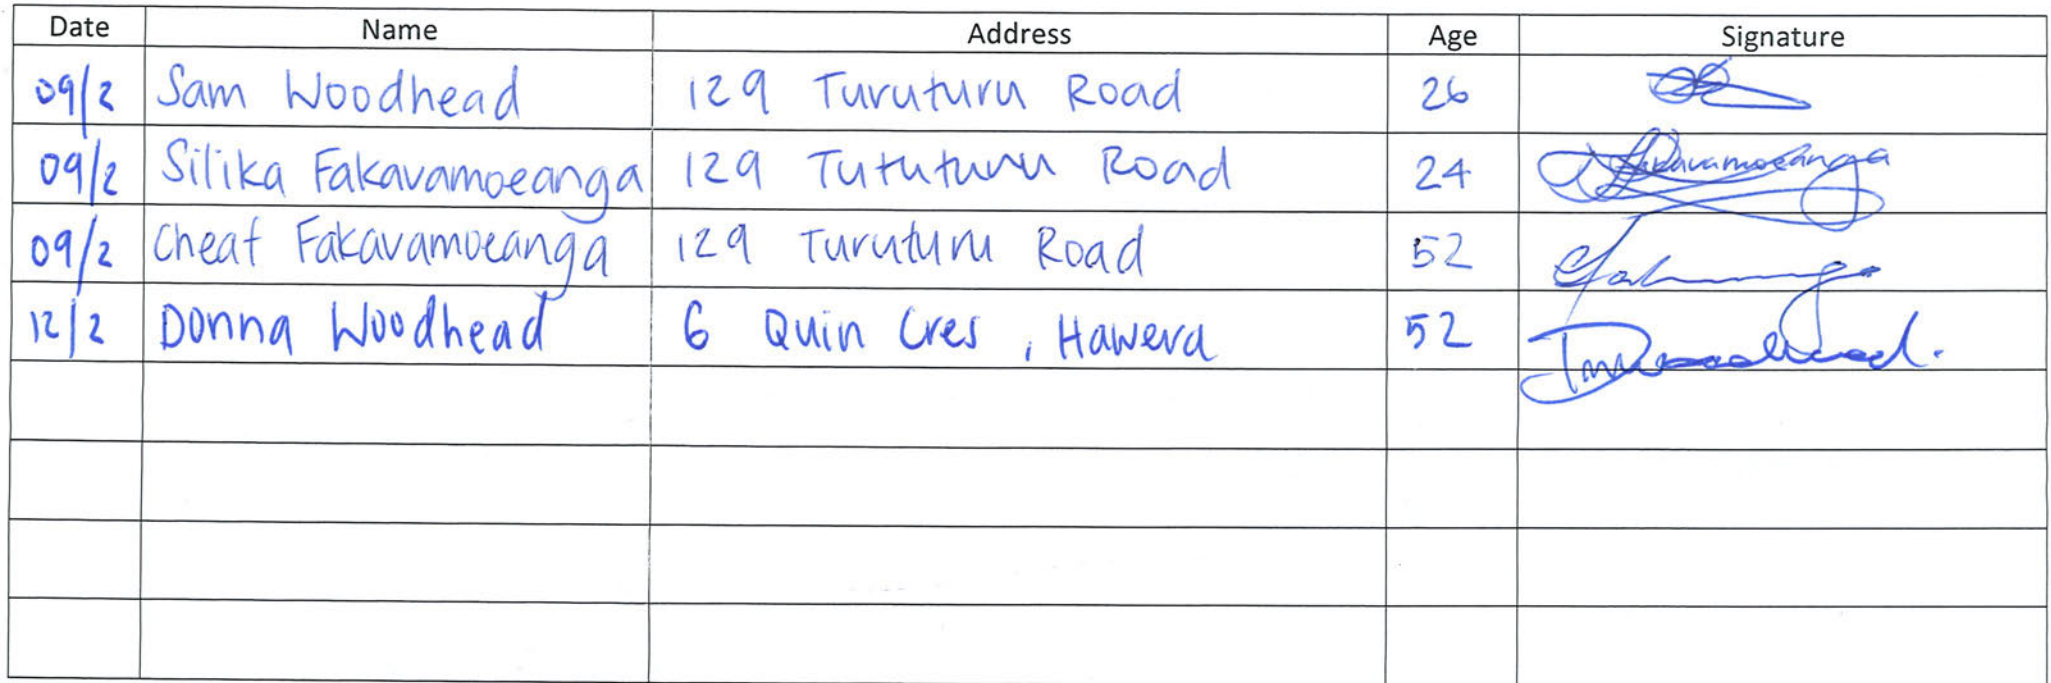 Date Name Address Age Signature
09/2 Sam Woodhead 129 Turuturu Road 26
09/2 Silika Fakavamoeanga 129 Tututuru Road 24 Fakavamoeanga
09/2 Cheat Fakavamoeanga 129 Turuturu Road 52
12/2 Donna Woodhead 6 Quin Cres, Hawera 52